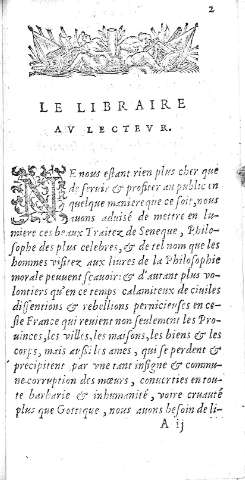 2
LE LIBRAIRE
AV LECTEVR.
NE nous estant rien plus cher que
de seruir & profiter au public en
quelque maniere que ce soit, nous
auons aduisé de mettre en lu-
miere ces beaux Traitez de Seneque, Philo-
sophe des plus celebres, & de tel nom que les
hommes visitez aux liures de la Philosophie
morale peuuent sçauoir: & d'autant plus vo-
lontiers qu'en ce temps calamiteux de ciuiles
dissentions & rebellions pernicieuses en ce-
ste France qui reuient non seulement les Pro-
uinces, les villes, les maisons, les biens & les
corps, mais aussi les ames, qui se perdent &
precipitent par vne tant insigne & commu-
ne corruption des mœurs, conuerties en tou-
te barbarie & inhumanité, voire cruauté
plus que Gottique, nous auons besoin de li-
A ij